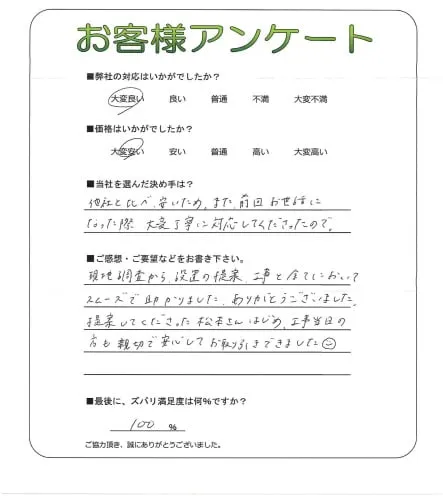 お客様アンケート
■弊社の対応はいかがでしたか?
大変良い 良い 普通 不満 大変不満
■価格はいかがでしたか?
大変安い 安い 普通 高い 大変高い
■当社を選んだ決め手は?
他社と比べ、安いため。また、前回お世話に
なった際、大変丁寧に対応してくださったので。
■ご感想・ご要望などをお書き下さい。
現地調査から、設置の提案、工事と全てにおいて
スムーズで助かりました。ありがとうございました。
提案してくださった松本さんはじめ、工事当日の
方も親切で安心してお取り引きできました☺
■最後に、ズバリ満足度は何%ですか?
100 %
ご協力頂き、誠にありがとうございました。